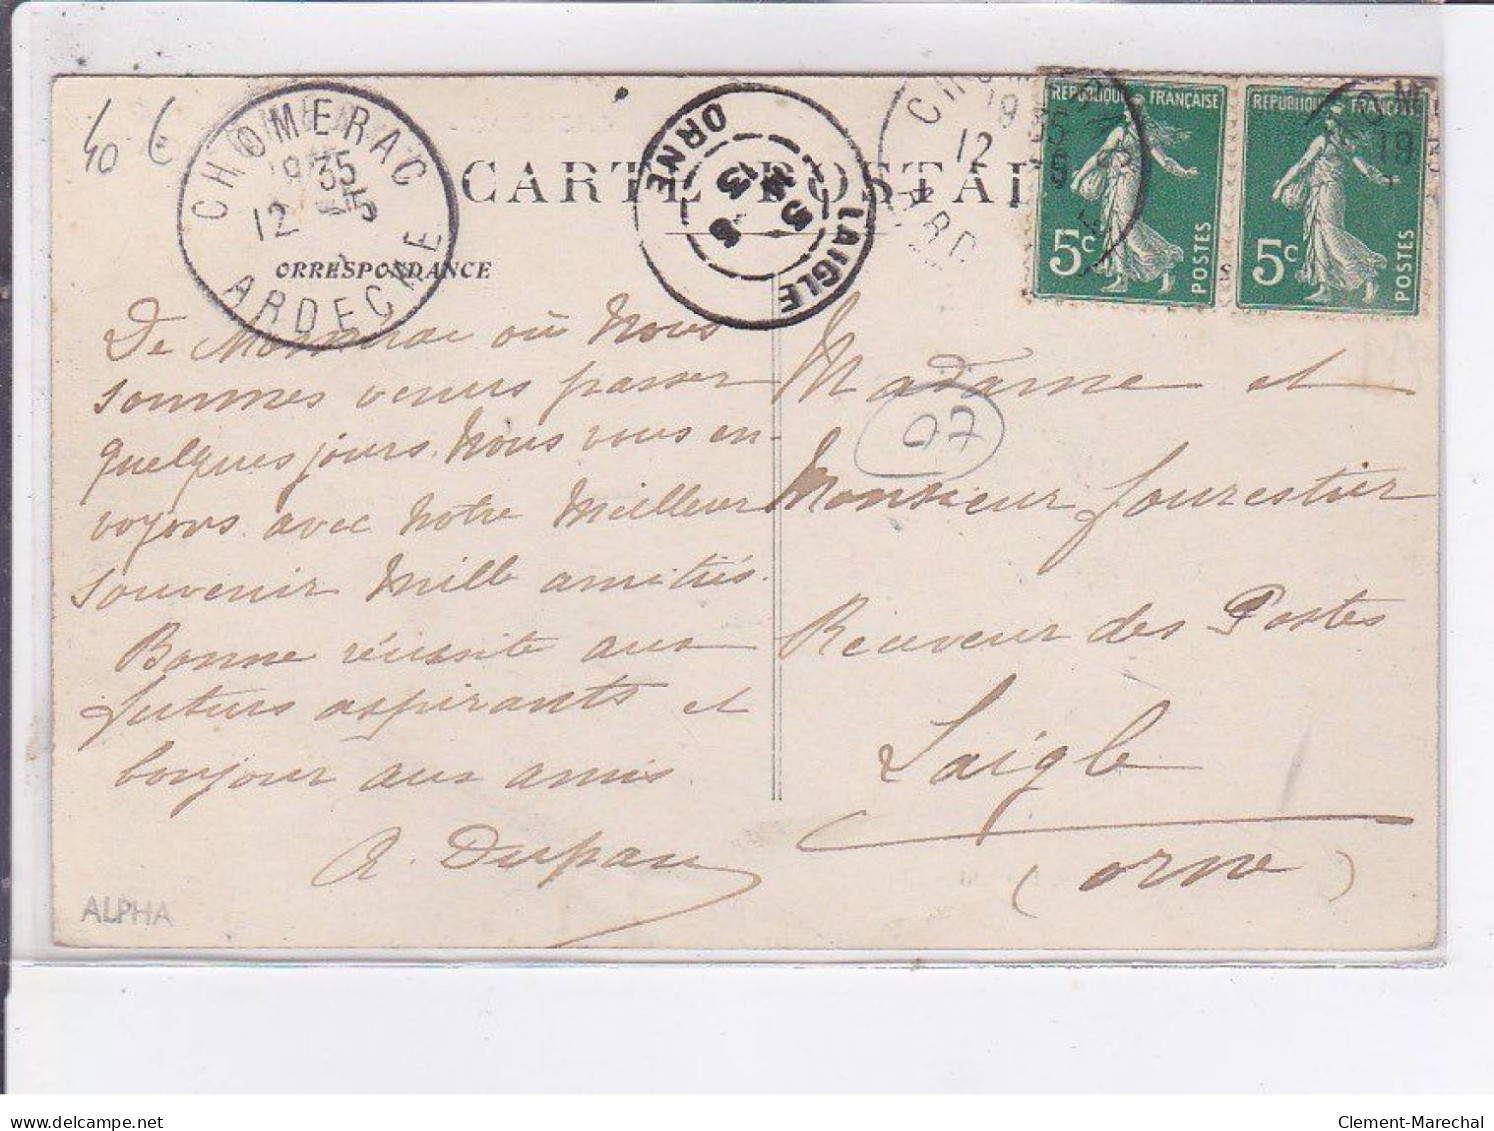 40 €
CHOMERAC
19 35
12 5
ARDECHE
CARTE POSTAL
CORRESPONDANCE
LAIGLE
5 5
13
ORNE
REPUBLIQUE FRANÇAISE
5c POSTES
REPUBLIQUE FRANÇAISE
5c POSTES
De Chomérac où nous
sommes venus passer
quelques jours. Nous vous en-
voyons avec notre meilleur
souvenir mille amitiés.
Bonne réussite aux
futurs aspirants et
bonjour aux amis.
A. Dupau
Madame et
Monsieur Fourestier
Receveur des Postes
Laigle
(Orne)
07
ALPHA
Clement-Marechal
delcampe.net